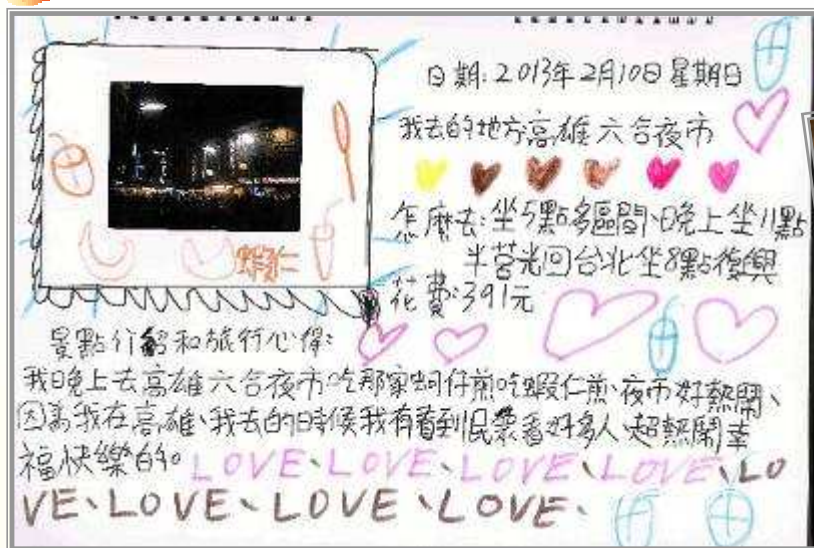 日期:2013年2月10日星期日
我去的地方高雄六合夜市
怎麼去:坐5點多區間、晚上坐11點
半莒光回台北坐8點復興
花費:391元
蝦仁
景點介紹和旅行心得:
我晚上去高雄六合夜市吃那家蚵仔煎吃蝦仁煎、夜市好熱鬧、
因為我在高雄、我去的時候我有看到民眾看好多人、超熱鬧幸
福快樂的。LOVE、LOVE、LOVE、LOVE、LO
VE、LOVE、LOVE、LOVE、